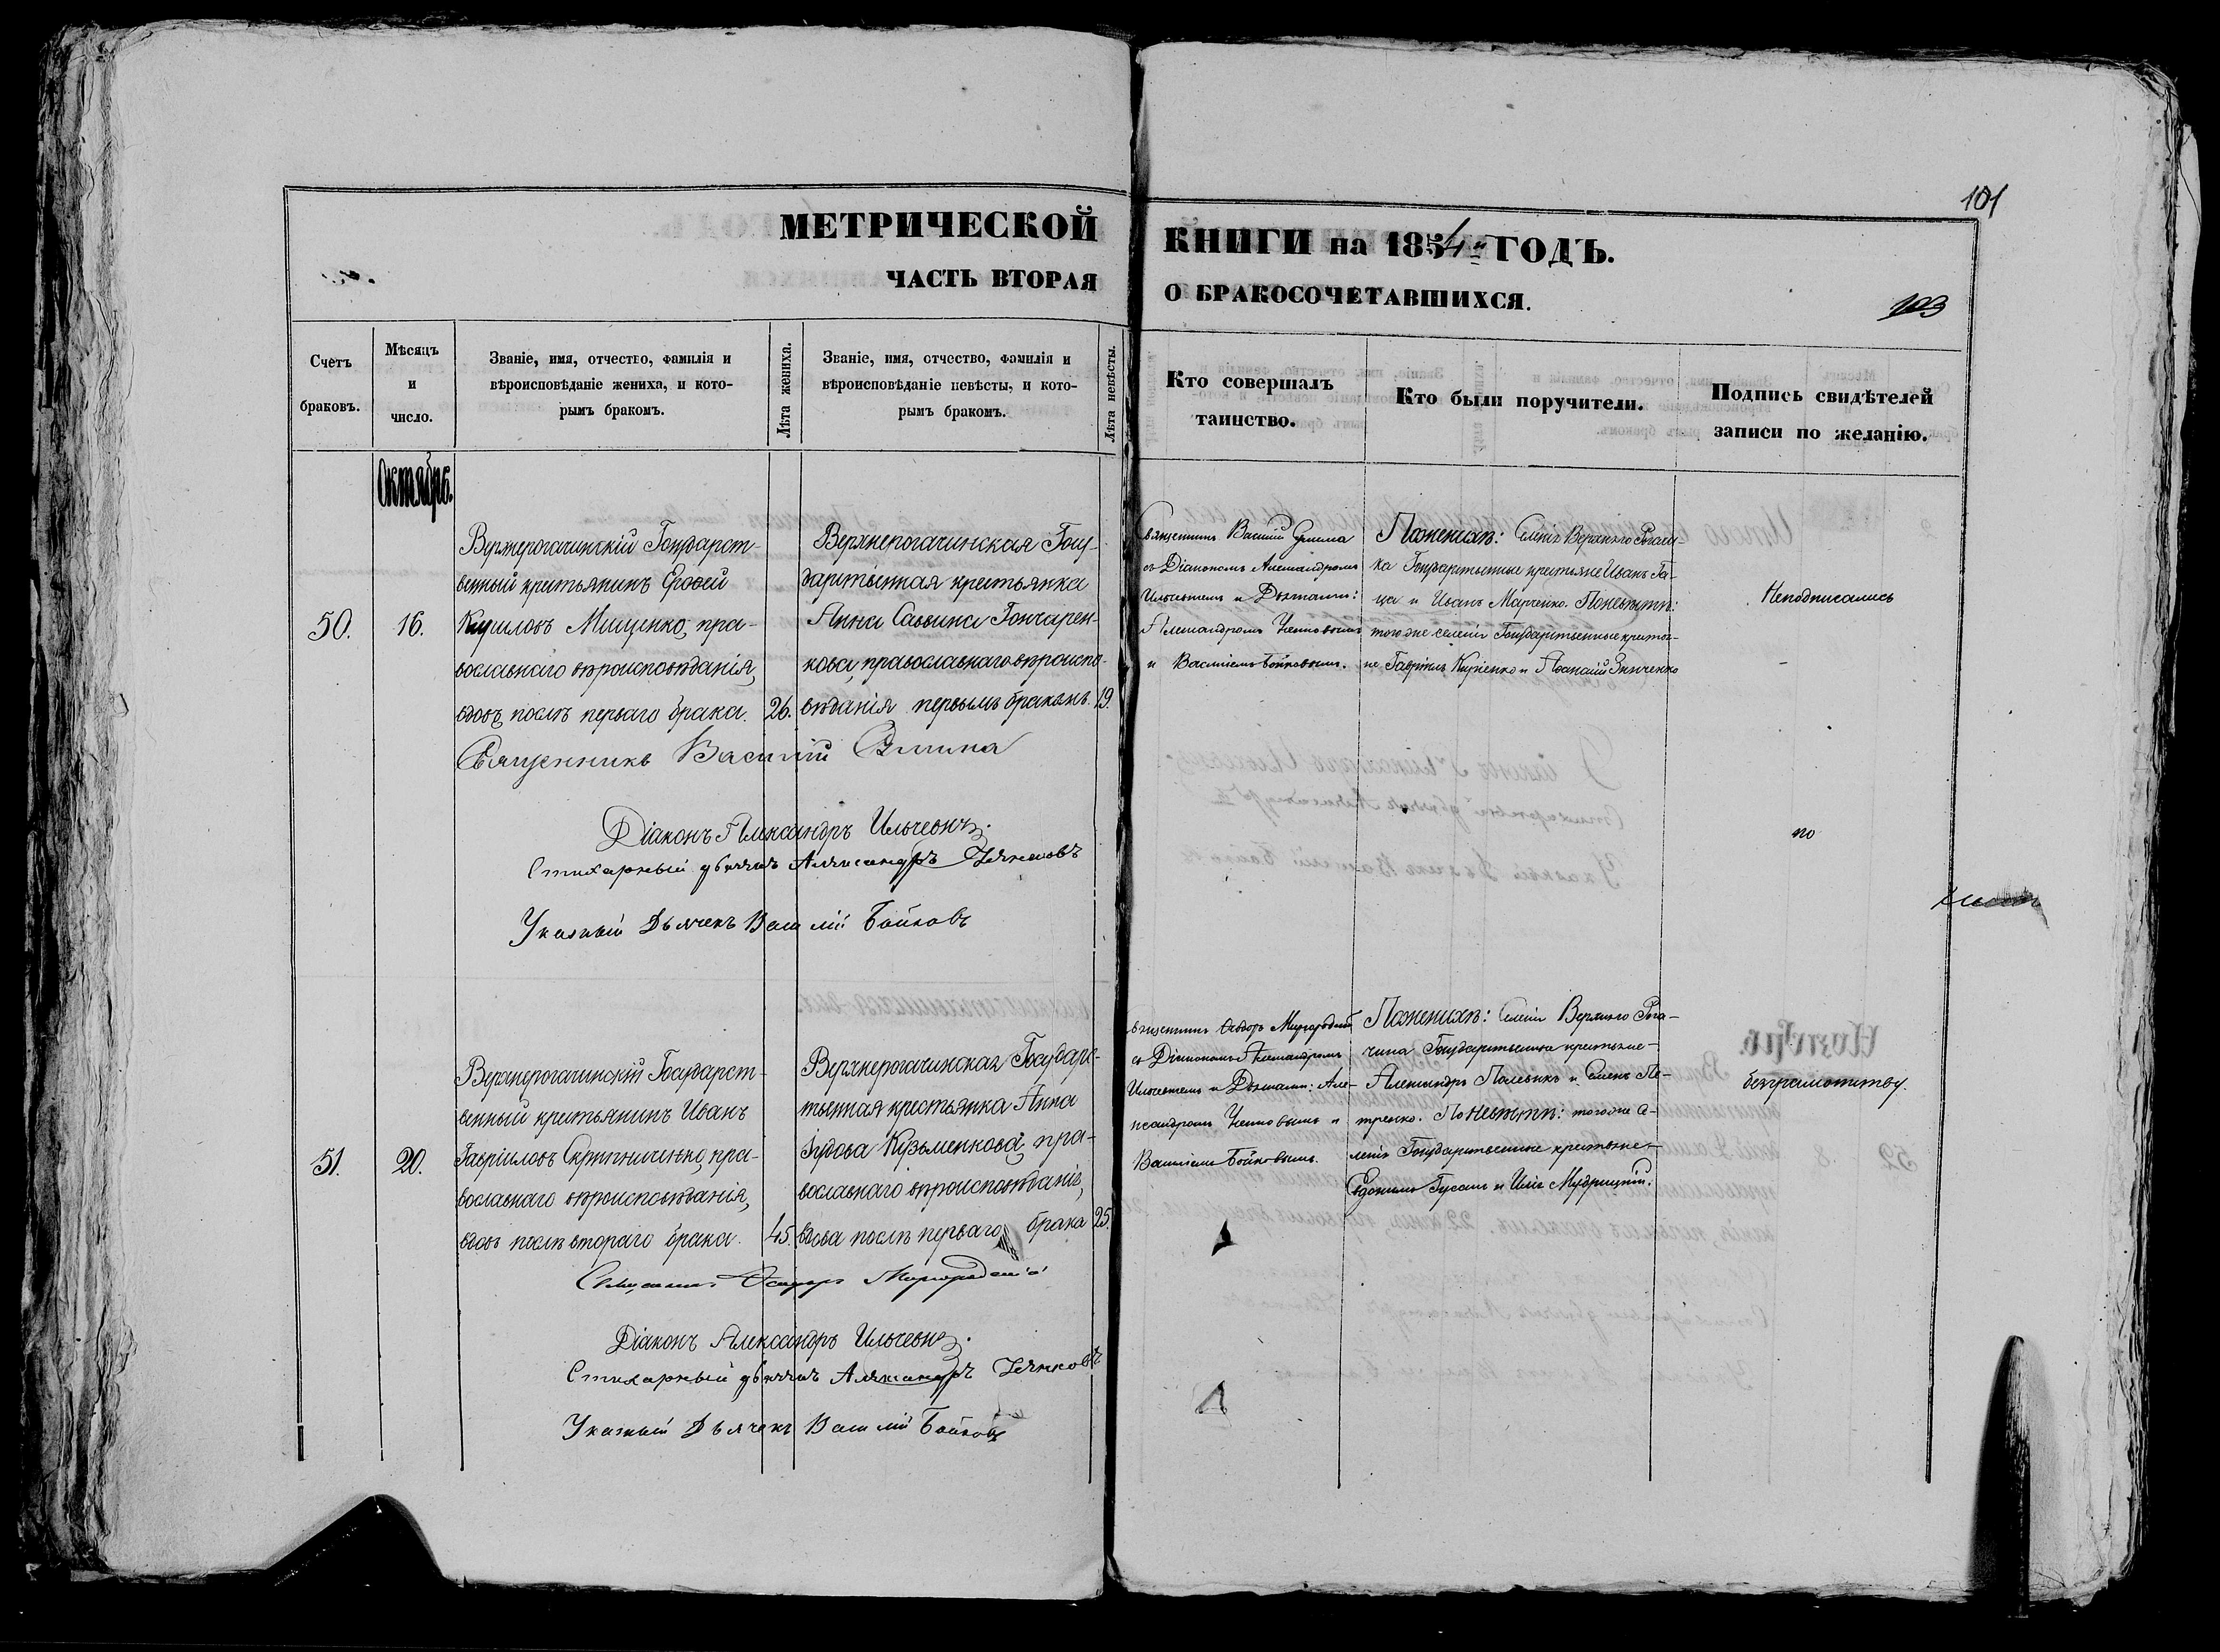 101
МЕТРИЧЕСКОЙ КНИГИ на 1854й ГОДЪ.
ЧАСТЬ ВТОРАЯ О БРАКОСОЧЕТАВШИХСЯ.
103
Счетъ браковъ.
Мѣсяцъ и число.
Званіе, имя, отчество, фамилія и
вѣроисповѣданіе жениха, и кото-
рымъ бракомъ.
Лѣта жениха.
Званіе, имя, отчество, фамилія и
вѣроисповѣданіе невѣсты, и кото-
рымъ бракомъ.
Лѣта невѣсты.
Кто совершалъ
таинство.
Кто были поручители.
Подпись свидѣтелей
записи по желанію.
Октябрь.
50.
16.
Верхнерогачинскій Государст-
венный крестьянинъ Ерофей
Кириловъ Мищенко, пра-
вославнаго вѣроисповѣданія,
вдовъ послѣ перваго брака.
26.
Верхнерогачинская Госу-
дарственная крестьянка
Анна Саввина Гончарен-
кова, православнаго вѣроиспо-
вѣданія первымъ бракомъ.
19.
Священникъ Василій
съ Діакономъ Александромъ
Ильчевичемъ и Дьячками:
Александромъ
и Василіемъ Бойковымъ.
Поженихѣ: Селенія Верхняго Рогачи-
ка Государственные крестьяне Иванъ Га-
ца и Иванъ Марченко. Поневѣстѣ:
тогоже селенія Государственные крестья-
не Гавріилъ Киріенко и Афанасій Зинченко
Неподписались
Священникъ Василій
Діаконъ Александръ Ильчевичъ.
Стихарный дьячекъ Александръ
Указный Дьячекъ Василій Бойковъ
по
51.
20.
Верхнерогачинскій Государст-
венный крестьянинъ Иванъ
Гавріиловъ Скрипниченко, пра-
вославнаго вѣроисповѣданія,
вдовъ послѣ втораго брака.
45.
Верхнерогачинская Государс-
твенная крестьянка Анна
Іудова Кузьменкова, пра-
вославнаго вѣроисповѣданія,
вдова послѣ перваго брака
25.
Священникъ Ѳеодоръ Миргородскій
съ Діакономъ Александромъ
Ильчевичемъ и Дьячками: Але-
ксандромъ и
Василіемъ Бойковымъ.
Поженихѣ: Селенія Верхняго Рога-
чика Государственные крестьяне
Александръ Полевикъ и Семенъ Пе-
тренко. Поневѣстѣ: тогоже се-
ленія Государственные крестьяне
Евдокимъ Гусакъ и Илія Мудрицкій.
безграмотству.
Священникъ Ѳеодоръ Миргородскій
Діаконъ Александръ Ильчевичъ.
Стихарный дьячекъ Александръ
Указный Дьячекъ Василій Бойковъ